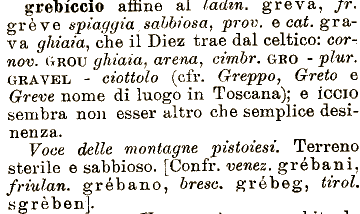 grebíccio affine al ladin. greva, fr.
grève spiaggia sabbiosa, prov. e cat. gra-
va ghiaia, che il Diez trae dal celtico: cor-
nov. GROU ghiaia, arena, cimbr. GRO - plur.
GRAVEL - ciottolo (cfr. Greppo, Greto e
Greve nome di luogo in Toscana); e íccio
sembra non esser altro che semplice desi-
nenza.
Voce delle montagne pistoiesi. Terreno
sterile e sabbioso. [Confr. venez. grébani,
friulan. grébano, bresc. grébeg, tirol.
sgrëben].